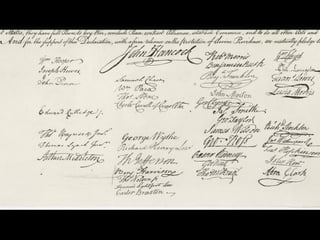 States, they have full Power to levy War, conclude Peace, contract Alliances, establish Commerce, and to do all other Acts and
And for the support of this Declaration, with a firm reliance on the Protection of divine Providence, we mutually pledge to
John Hancock
Wm Hooper
Joseph Hewes,
John Penn
Edward Rutledge /.
Thos Heyward Junr.
Thomas Lynch Junr.
Arthur Middleton
Samuel Chase
Wm Paca
Thos Stone
Charles Carroll of Carrollton
George Wythe
Richard Henry Lee
Th Jefferson
Benj Harrison
Thos Nelson jr.
Francis Lightfoot Lee
Carter Braxton
Robt Morris
Benjamin Rush
Benj Franklin
John Morton
Geo Clymer
Jas Smith
Geo Taylor
James Wilson
Geo. Ross
Caesar Rodney
Geo Read
Tho M:Kean
Wm Floyd
Phil. Livingston
Frans. Lewis
Lewis Morris
Richd. Stockton
Jno Witherspoon
Fras. Hopkinson
John Hart
Abra Clark